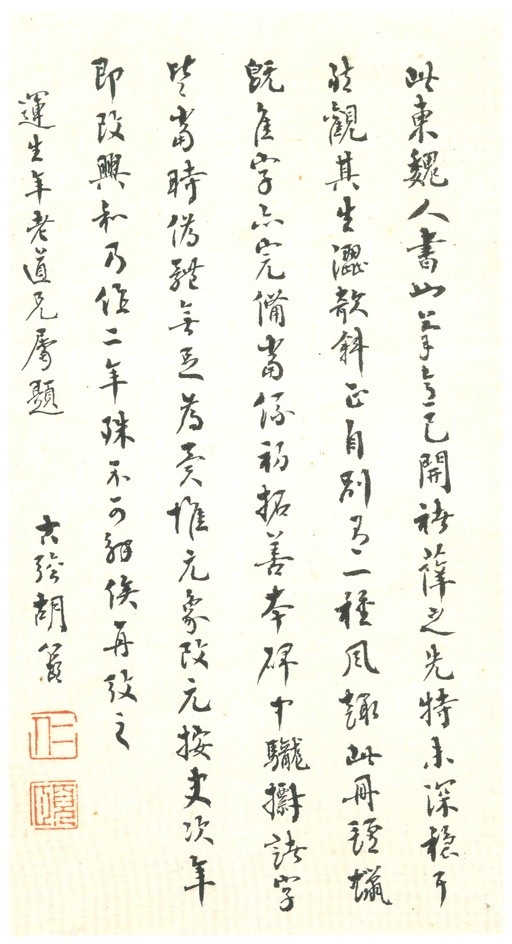 此東魏人書也筆意已開褚薛之先特未深穩耳
然觀其生澀欹斜正自別有一種風趣此冊氈蠟
既佳字亦完備當係初拓善本碑中諸字
皆當時偽體無足為惟元象改元按史次年
即改興和乃作二年殊不可解俟再攷之
運生年老道兄屬題
古胡